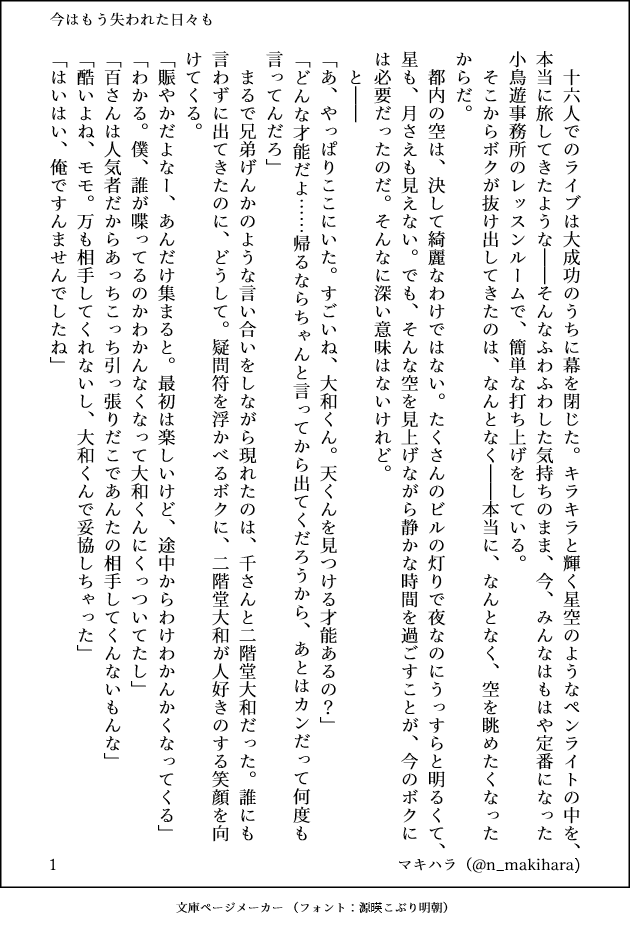 今はもう失われた日々も
　十六人でのライブは大成功のうちに幕を閉じた。キラキラと輝く星空のようなペンライトの中を、
本当に旅してきたような――そんなふわふわした気持ちのまま、今、みんなはもはや定番になった
小鳥遊事務所のレッスンルームで、簡単な打ち上げをしている。
　そこからボクが抜け出してきたのは、なんとなく――本当に、なんとなく、空を眺めたくなった
からだ。
　都内の空は、決して綺麗なわけではない。たくさんのビルの灯りで夜なのにうっすらと明るくて、
星も、月さえも見えない。でも、そんな空を見上げながら静かな時間を過ごすことが、今のボクに
は必要だったのだ。そんなに深い意味はないけれど。
　と――
「あ、やっぱりここにいた。すごいね、大和くん。天くんを見つける才能あるの？」
「どんな才能だよ……帰るならちゃんと言ってから出てくだろうから、あとはカンだって何度も
言ってんだろ」
　まるで兄弟げんかのような言い合いをしながら現れたのは、千さんと二階堂大和だった。誰にも
言わずに出てきたのに、どうして。疑問符を浮かべるボクに、二階堂大和が人好きのする笑顔を向
けてくる。
「賑やかだよなー、あんだけ集まると。最初は楽しいけど、途中からわけわかんかくなってくる」
「わかる。僕、誰が喋ってるのかわかんなくなって大和くんにくっついてたし」
「百さんは人気者だからあっちこっち引っ張りだこであんたの相手してくんないもんな」
「酷いよね、モモ。万も相手してくれないし、大和くんで妥協しちゃった」
「はいはい、俺ですんませんでしたね」
マキハラ（@n_makihara）
1
文庫ページメーカー（フォント：源暎こぶり明朝）